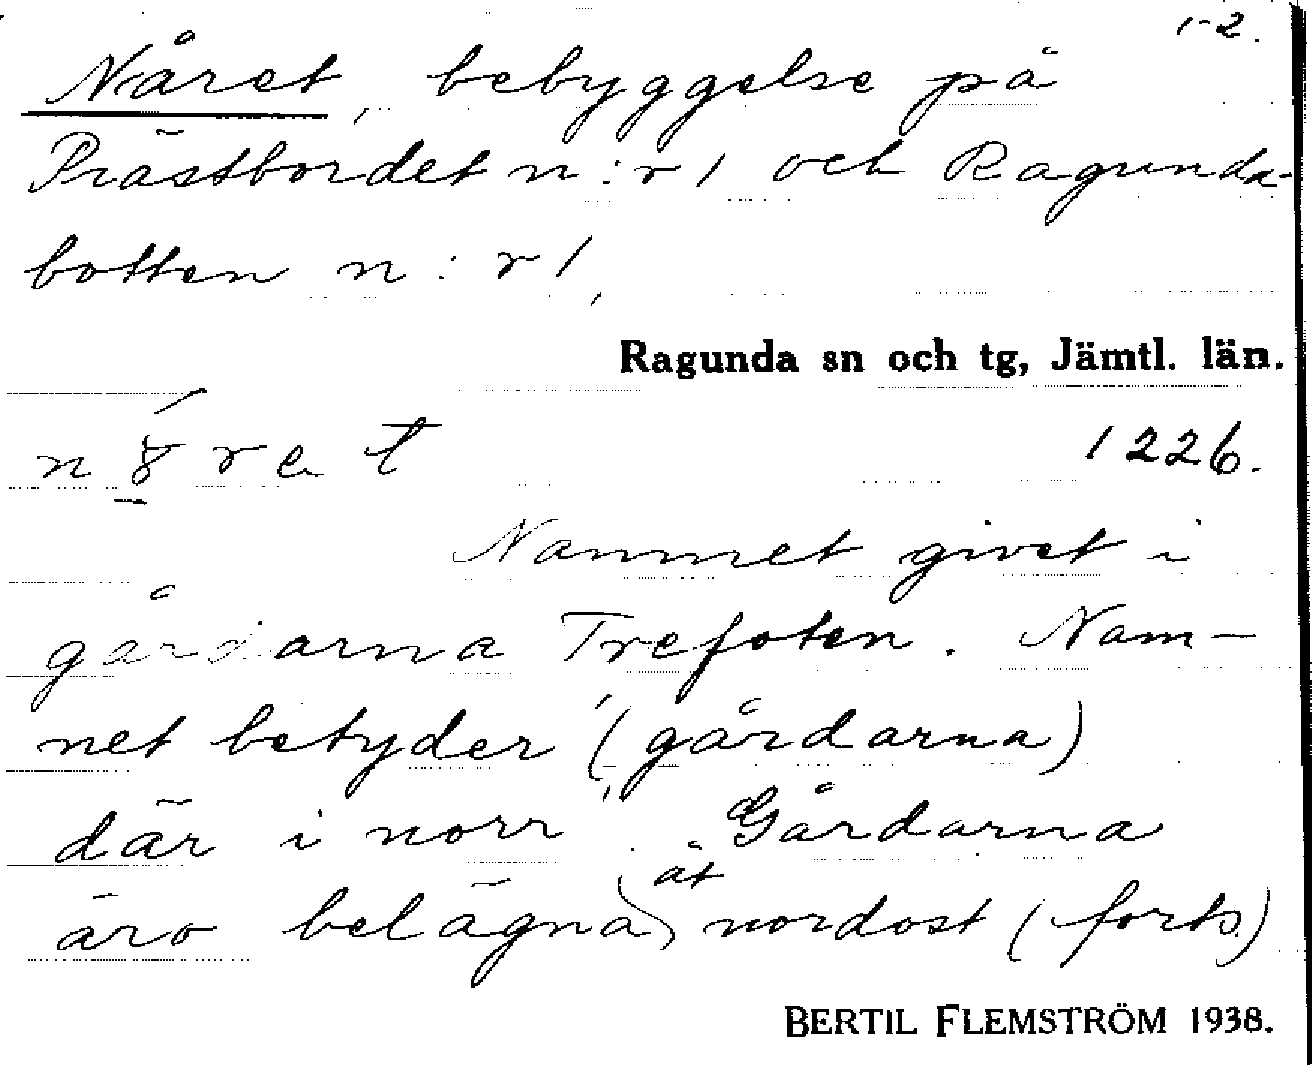 1-2.
Nåret, bebyggelse på
Prästbordet n:r 1 och Ragunda-
botten n:r 1,
Ragunda sn och tg, Jämtl. län.
1226.
Namnet givet i
gårdarna Trefoten. Nam-
net betyder "(gårdarna)
där i norr". Gårdarna
äro belägna åt nordost (forts)
BERTIL FLEMSTRÖM 1938.